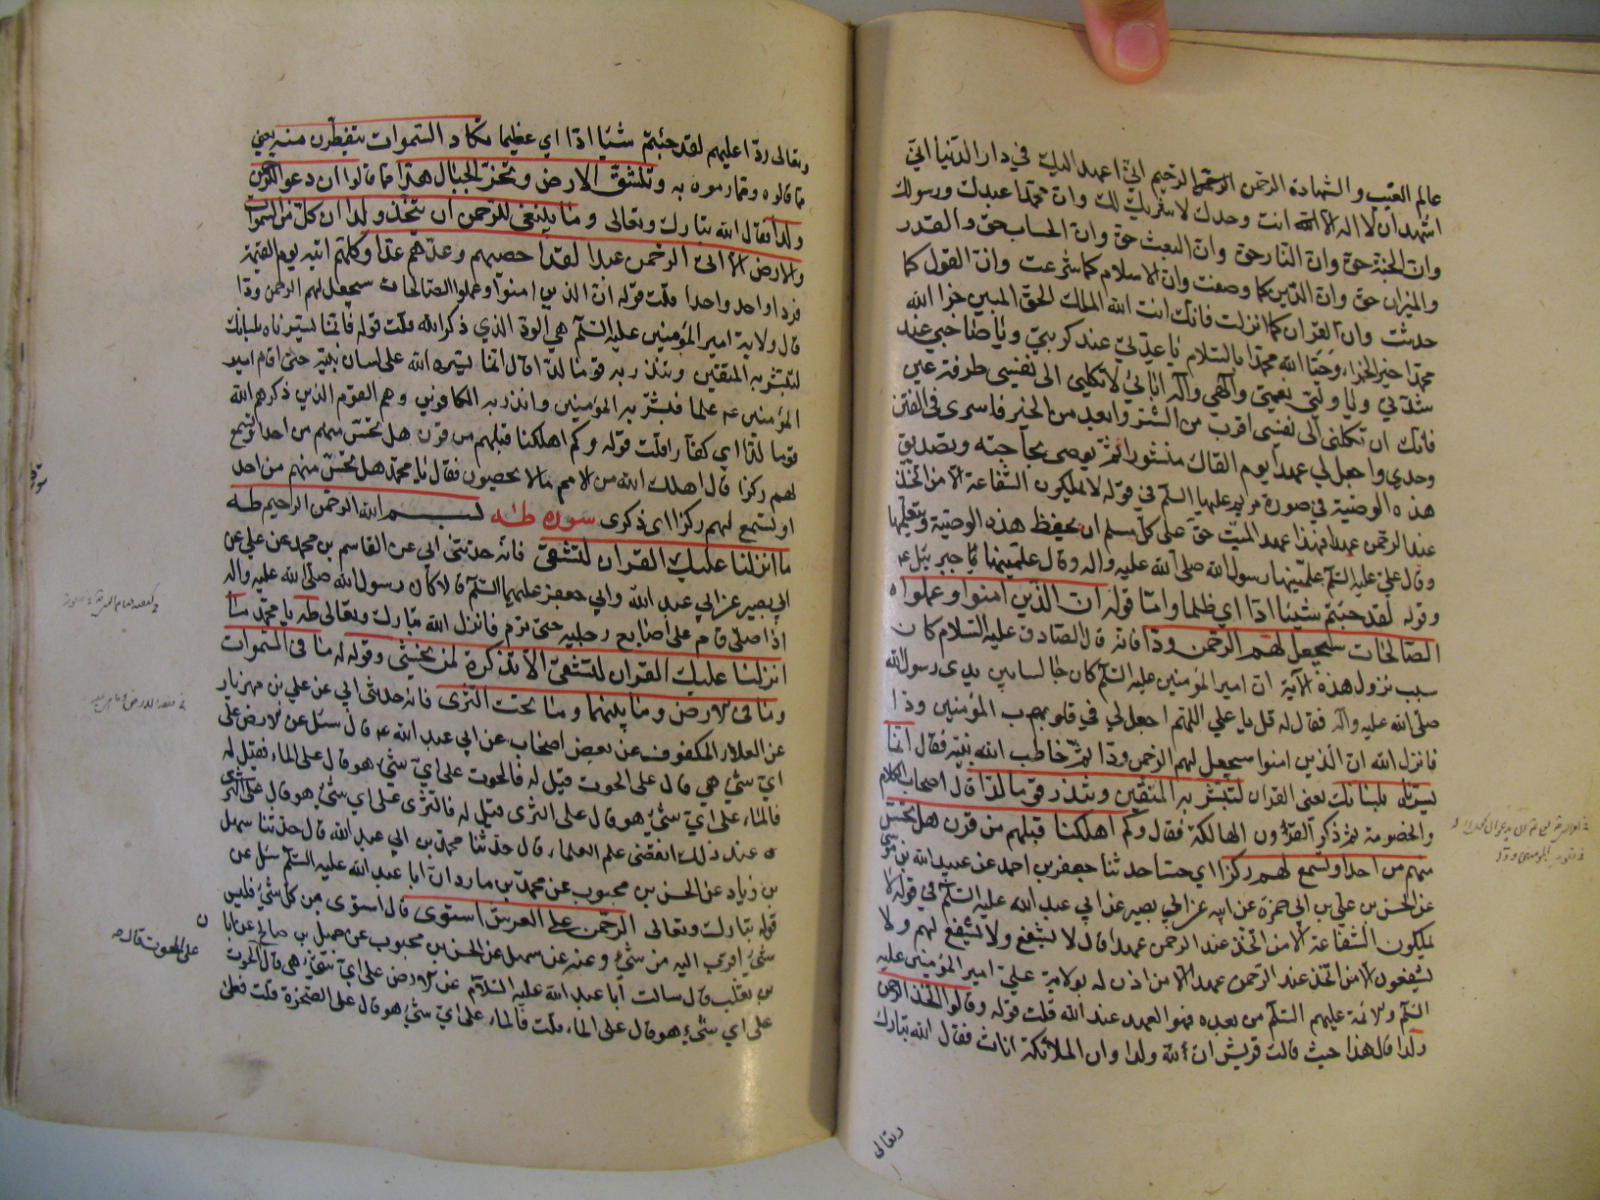 عالم الغيب و الشهادة الرحمن الرحيم انى اعهد اليك في دار الدنيا انى
اشهد ان لا اله الا انت وحدك لا شريك لك وان محمدا عبدك ورسولك
وان الجنة حق وان النار حق وان البعث حق وان الحساب حق و القدر
والميزان حق وان الدين كما وصفت وان الاسلام كما شرعت وان القول كما
حدثت وان القران كما انزلت وانك انت الله الملك الحق المبين جزا الله
محمدا خير الجزاء وحيا الله محمدا بالسلام يا عدتى عند كربتي ويا صاحبي عند
شدتي ويا وليى نعمتي والهى واله ابائي لا تكلني الى نفسى طرفة عين
فانك ان تكلنى الى نفسى اقرب من الشر وابعد من الخير فاسرى في الفتن
وحدي واجعل لي عهدا يوم القاك منشورا ثم يوصى بحاجته وتصديق
هذه الوصية في صورة مريم عليها السلم في قوله لا يملكون الشفاعة الا من اتخذ
عند الرحمن عهدا فهذا عهد الميت حق على كل مسلم ان يحفظ هذه الوصية ويتعلمها
وقال علي عليه السلم علمنيها رسول الله صلى الله عليه واله وقال علمنيها جبرئيل ع
وقوله لقد جئتم شيئا ادا اي ظلما واما قوله ان الذين امنوا وعملوا
الصالحات سيجعل لهم الرحمن ودا فانه قال الصادق عليه السلام كان
سبب نزول هذه الاية ان امير المؤمنين عليه السلم كان جالسا بين يدى رسول الله
صلى الله عليه واله فقال له قل يا علي اللهم اجعل لي في قلوب المؤمنين ودا
فانزل الله ان الذين امنوا سيجعل لهم الرحمن ودا ثم خاطب الله نبيه فقال انما
يسرناه بلسانك يعنى القران لتبشر به المتقين وتنذر به قوما لدا قال اصحاب الكلام
والخصومة ثم ذكر القرون الهالكة فقال وكم اهلكنا قبلهم من قرن هل تحس
منهم من احد او تسمع لهم ركزا اي حسا حدثنا جعفر بن احمد عن عبيد الله بن موسى
عن الحسن بن علي بن ابى حمزة عن ابيه عن ابي بصير عن ابي عبد الله عليه السلم في قوله لا
يملكون الشفاعة الا من اتخذ عند الرحمن عهدا قال لا يشفع ولا يشفع لهم ولا
يشفعون الا من اتخذ عند الرحمن عهدا الا من اذن له بولاية علي امير المؤمنين عليه
السلم والائمة عليهم السلم من بعده فهو العهد عند الله قلت قوله وقالوا اتخذ الرحمن
ولدا قال هذا حيث قالت قريش ان لله ولدا وان الملائكة اناث فقال الله تبارك
وتعالى
وتعالى ردا عليهم لقد جئتم شيئا ادا اي عظيما تكاد السموات يتفطرن منه يعني
مما قالوه ومما رموه به وتنشق الارض وتخر الجبال هدا مما قالوا ان دعوا للرحمن
ولدا فقال الله تبارك وتعالى وما ينبغى للرحمن ان يتخذ ولدا ان كل من في السموات
والارض الا اتى الرحمن عبدا لقد احصيهم وعدهم عدا وكلهم اتيه يوم القيمة
فردا واحدا واحدا قلت قوله ان الذين امنوا وعملوا الصالحات سيجعل لهم الرحمن ودا
قال ولاية امير المؤمنين عليه السلم هي الود الذي ذكر الله قلت قوله فانما يسرناه بلسانك
لتبشر به المتقين وتنذر به قوما لدا قال انما يسره الله على لسان نبيه حتى اقام امير
المؤمنين ع علما فبشر به المؤمنين وانذر به الكافرين وهم القوم الذين ذكرهم الله
قوما لدا اي كفارا قلت قوله وكم اهلكنا قبلهم من قرن هل تحس منهم من احد او تسمع
لهم ركزا قال اهلك الله من الامم ما لا يحصون فقال يا محمد هل تحس منهم من احد
او تسمع لهم ركزا اى ذكرى سورة طه بسم الله الرحمن الرحيم طه
ما انزلنا عليك القران لتشقى فانه حدثني ابي عن القاسم بن محمد عن علي عن
ابي بصير عن ابي عبد الله وابي جعفر عليهما السلم قالا كان رسول الله صلى الله عليه واله
اذا صلى قام على اصابع رجليه حتى تورم فانزل الله تبارك وتعالى طه يا محمد ما
انزلنا عليك القران لتشقى الا تذكرة لمن يخشى وقوله له ما في السموات
وما في الارض وما بينهما وما تحت الثرى فانه حدثني ابي عن علي بن مهزيار
عن العلاء المكفوف عن بعض اصحاب عن ابي عبد الله ع قال سئل عن الارض على
اي شئ هي قال على الحوت قيل له فالحوت على اي شئ هو قال على الماء فقيل له
فالماء على اي شئ هو قال على الثرى قيل له فالثرى على اي شئ هو قال على الثرى
ه عند ذلك انقضى علم العلماء قال حدثنا محمد بن ابي عبد الله قال حدثنا سهل
بن زياد عن الحسن بن محبوب عن محمد بن مارد ان ابا عبد الله عليه السلم سئل عن
قوله تبارك وتعالى الرحمن على العرش استوى قال استوى من كل شئ فليس
شئ اقرب اليه من شئ وعنه عن سهل عن الحسن بن محبوب عن جميل بن صالح عن ابان
بن تغلب قال سالت ابا عبد الله عليه السلام عن الارض على اي شئ هى قال الحوت
على اي شئ هو قال على الماء قلت فالماء على اي شئ هو قال على الصخرة قلت فعلى
على الحوت قال ه